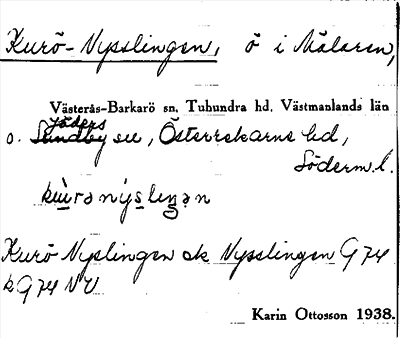 Kurö-Nysslingen, ö i Mälaren,
Västerås-Barkarö sn. Tuhundra hd. Västmanlands län
Jäders
o. Sundby sn, Österrekarne hd,
Söderm. l.
Kurö Nyslingen ek Nysslingen G74
k G74 NV
Karin Ottosson 1938.